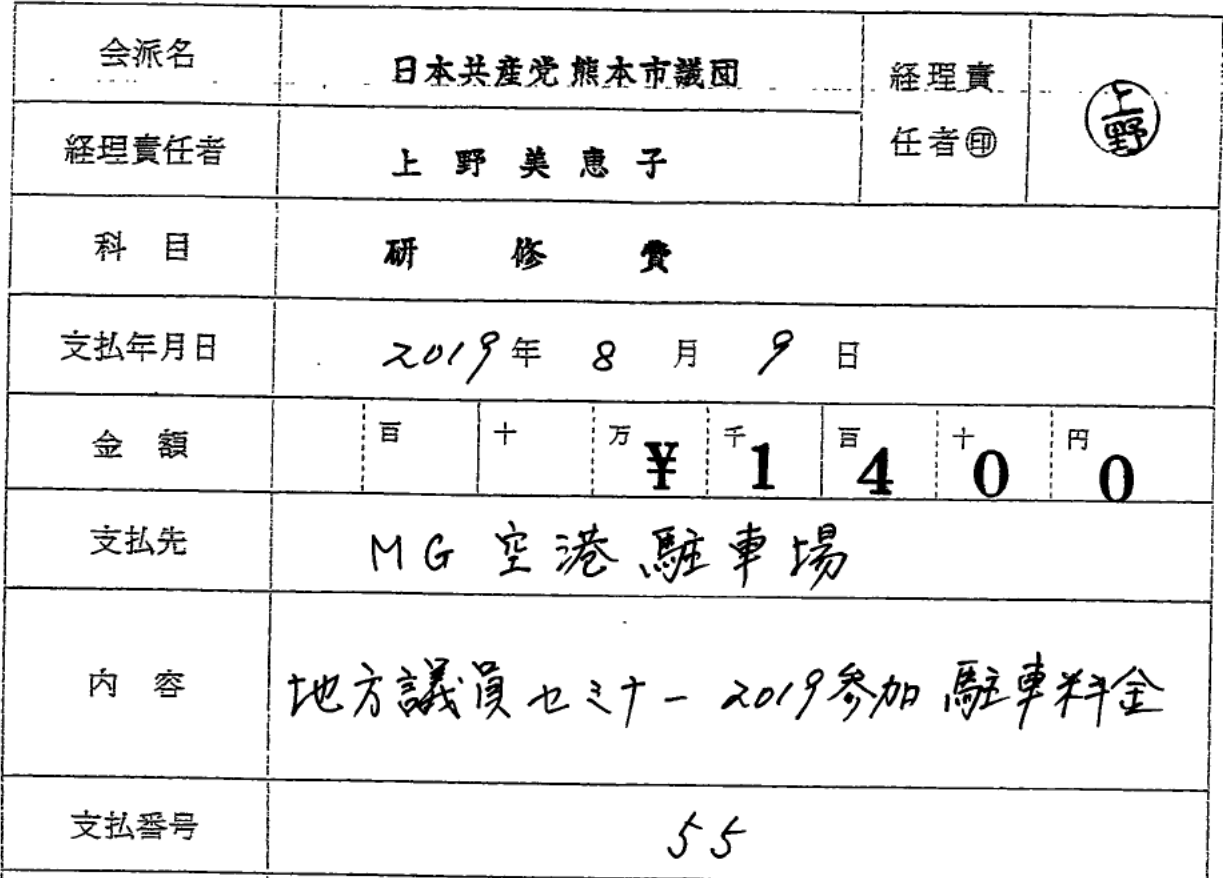 会派名 日本共産党熊本市議団 経理責任者㊞ 上野
経理責任者 上野美恵子
科目 研修費
支払年月日 2019年 8月 9日
金額 百 十 万 ¥ 千 1 百 4 十 0 円 0
支払先 MG空港駐車場
内容 地方議員セミナー2019参加 駐車料金
支払番号 55